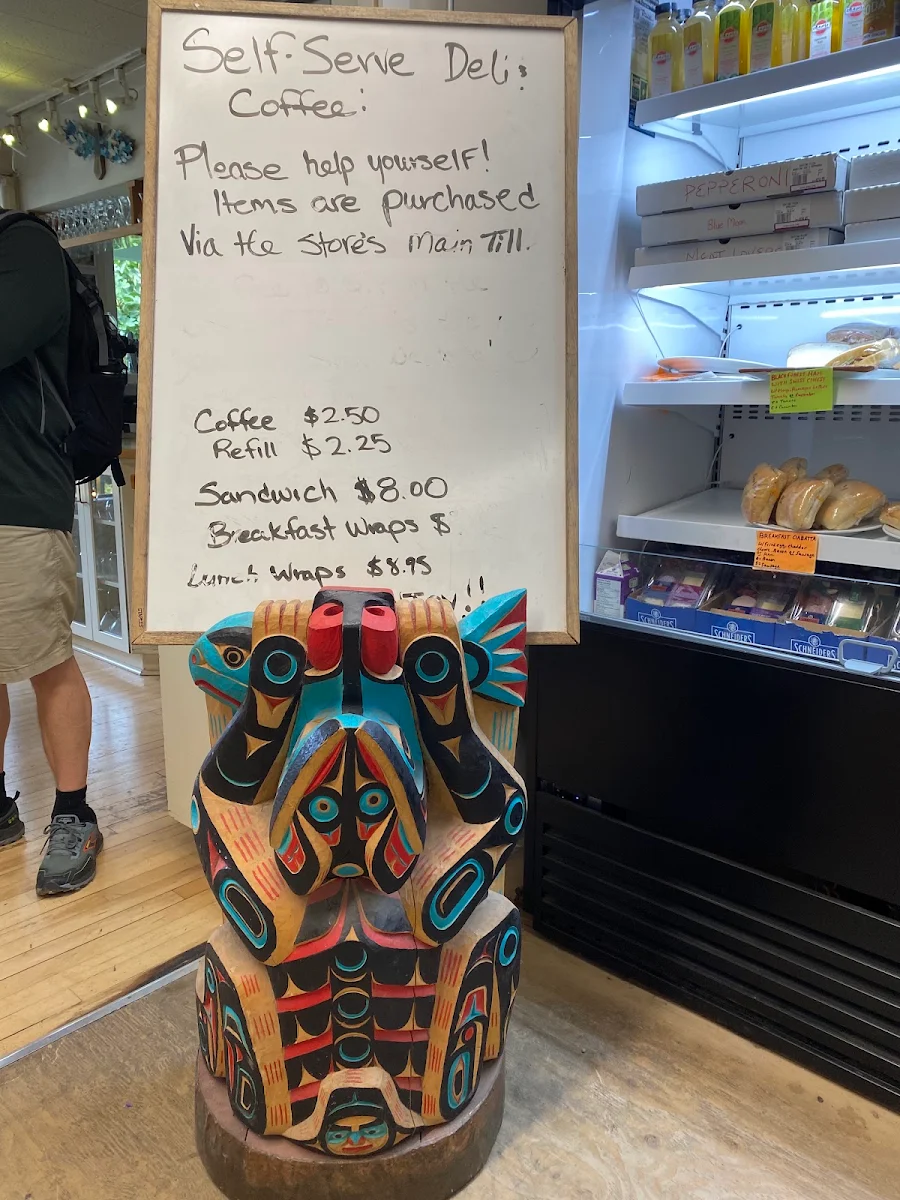 Self-Serve Deli:
Coffee:
Please help yourself!
Items are purchased
Via the store's main Till.
Coffee $2.50
Refill $2.25
Sandwich $8.00
Breakfast Wraps $
Lunch Wraps $8.95
PEPPERONI
Blue Moon
BLACK FOREST HAM
WITH SWISS CHEESE
BREAKFAST CIABATTA
SCHNEIDERS
SCHNEIDERS
SCHNEIDERS